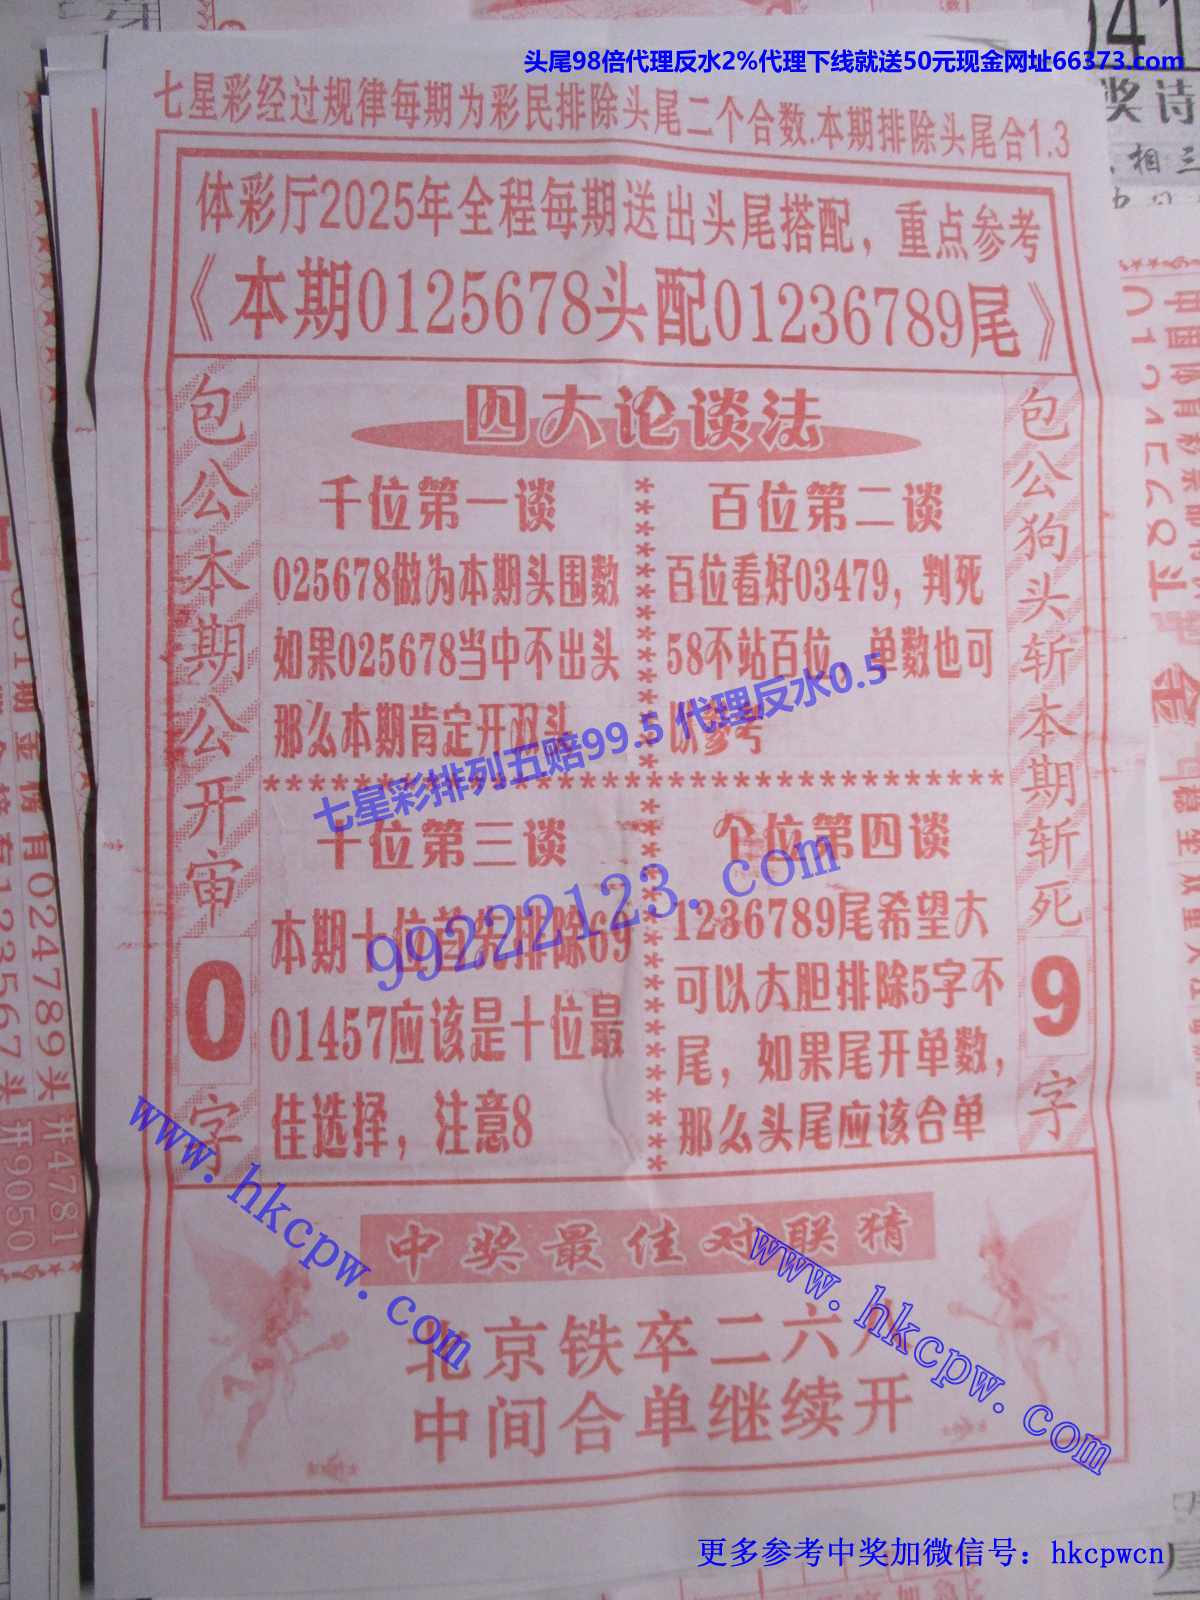 头尾98倍代理反水2%代理下线就送50元现金网址66373.com
七星彩经过规律每期为彩民排除头尾二个合数.本期排除头尾合1.3
体彩厅2025年全程每期送出头尾搭配，重点参考
《本期0125678头配01236789尾》
包公本期公开审
0
字
四大论谈法
千位第一谈
025678做为本期头围数
如果025678当中不出头
那么本期肯定开双头
百位第二谈
百位看好03479，判死
58不站百位，单数也可
以参考
七星彩排列五赔99.5 代理反水0.5
99222123.com
十位第三谈
本期十位首先排除69
01457应该是十位最
佳选择，注意8
个位第四谈
1236789尾希望大
可以大胆排除5字不
尾，如果尾开单数，
那么头尾应该合单
包公狗头斩本期斩死
9
字
www.hkcpw.com
www.hkcpw.com
中奖最佳对联猜
北京铁卒二六八
中间合单继续开
更多参考中奖加微信号：hkcpwcn
024789头
开4781
123567头
开9050
奖诗